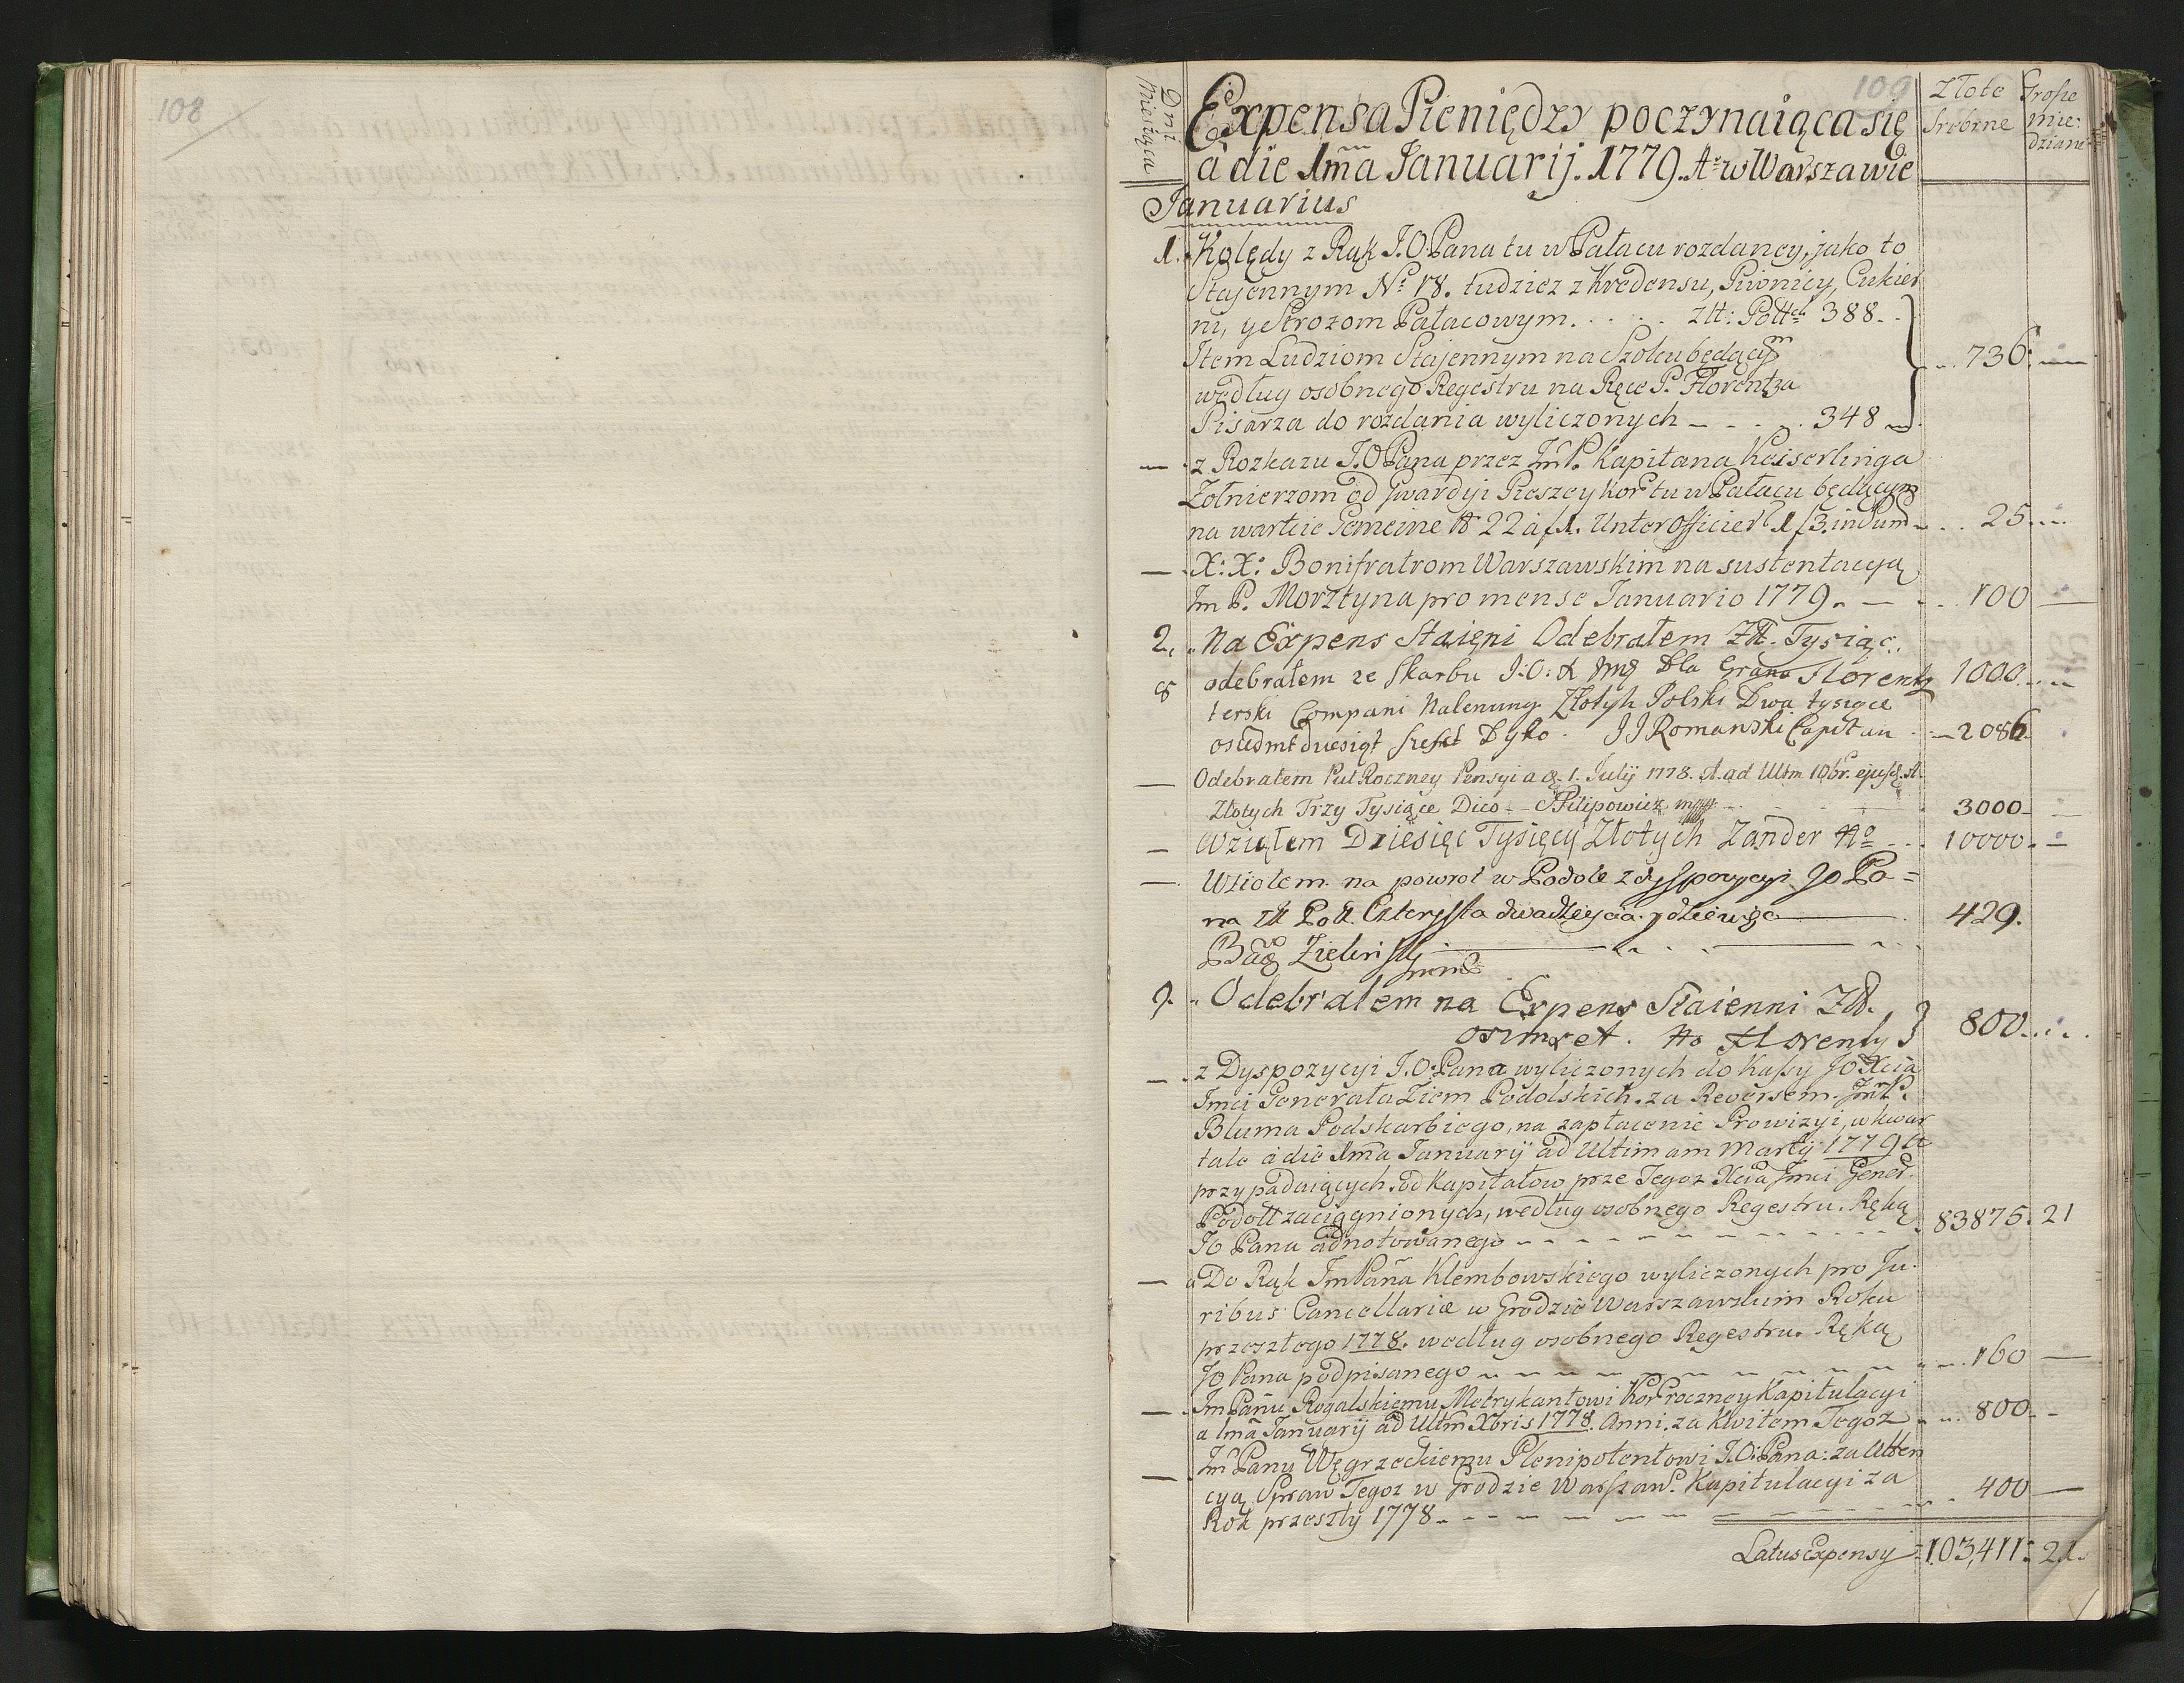 108
109
Dni Miesiąca
Złote Srebrne
Grosze mie: dziane
Expensa Pieniędzy poczynaiąca się
à die 1ma Januarij. 1779. Ao w Warszawie
Januarius
1. Kolędy z Rąk J.O. Pana tu w Pałacu rozdaney, jako to
Stajennym No 18. tudziez z Kredensu, Piwnicy, Cukier
ni, y Strozom Pałacowym. złł: Pollch 388.
Item Ludziom Stajennym na Szolcu będącym
według osobnego Regestru na Ręce P. Florentza
Pisarza do rozdania wyliczonych 348
736.
z Rozkazu J.O Pana przez ImP. Kapitana Keiserlinga
Żołnierzom od Gwardyi Pieszey Kor: tu w Pałacu będącym
na warcie Gemeine 22 à f 1. Unterofficier 1 f 3. in Sum 25
X: X: Bonifratrom Warszawskim na sustentacyą
Im P. Morztyna pro mense Januario 1779. 100
2. Na Expens Staieni Odebrałem Złł. Tysiąc
Florentz 1000
8 odebrałem ze Skarbu J.O: X Img Dla Grana
terski Compani Nalenung Złotyh Polski Dwa tysiące
osiedmdziesiąt szesc Dyko. JJ Romanski Capitan 2086.
Odebrałem Puł Roczney Pensyi a d. 1. Julij 1778. A. ad Ultm 10br. ejusd. A.
Złotych Trzy Tysiące Dico Filipowicz mpp 3000
Wziąłem Dziesięc Tysięcy Złotych Zander 10000.
Wziołem na powrot w Podole z dyspozycyi JO Pa=
na zł Poll. Czterysta dwadzieyscia y dziewięc 429.
Zielinski
9. Odebrałem na Expens Staienni Złł.
osimset. Florentz 800
z Dyspozycyi J.O. Pana wyliczonych do Kassy JO Xcia
Imci Generała Ziem Podolskich. za Rewersem ImP.
Bluma Podskarbiego, na zapłacenie Prowizyi, w kwar
tale à die 1ma Januarij ad Ultimam Martij 1779 A
przypadaiących. od Kapitałow prze Tegoz Xcia Imci Gener.
Podoll zaciągnionych, według osobnego Regestru. Ręką
JO Pana adnotowanego 83875. 21
Do Rąk ImPana Klembowskiego wyliczonych pro Ju.
ribus Cancellariæ w Grodzie Warszawskim Roku
przeszłego 1778. według osobnego Regestru. Ręką
JO Pana podpisanego 160
ImPanu Rogalskiemu Metrykantowi Kor: roczney Kapitulacyi
a 1ma Januarij ad Ultm Xbris 1778. Anni. za Kwitem Tegoz 800
Im Panu Węgrzeckiemu Plenipotentowi J.O: Pana: za Atten
cyą Spraw Tegoz w Grodzie Warszaw. Kapitulacyi za
Rok przeszły 1778 400
Latus Expensy 103,411. 21.